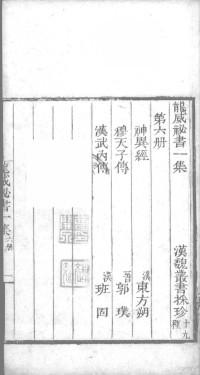 龍威祕書一集
漢魏叢書採珍十九種
第六册
神異經
漢
東方朔
穆天子傳
晉
郭璞
漢武內傳
漢
班固
龍威祕書一集